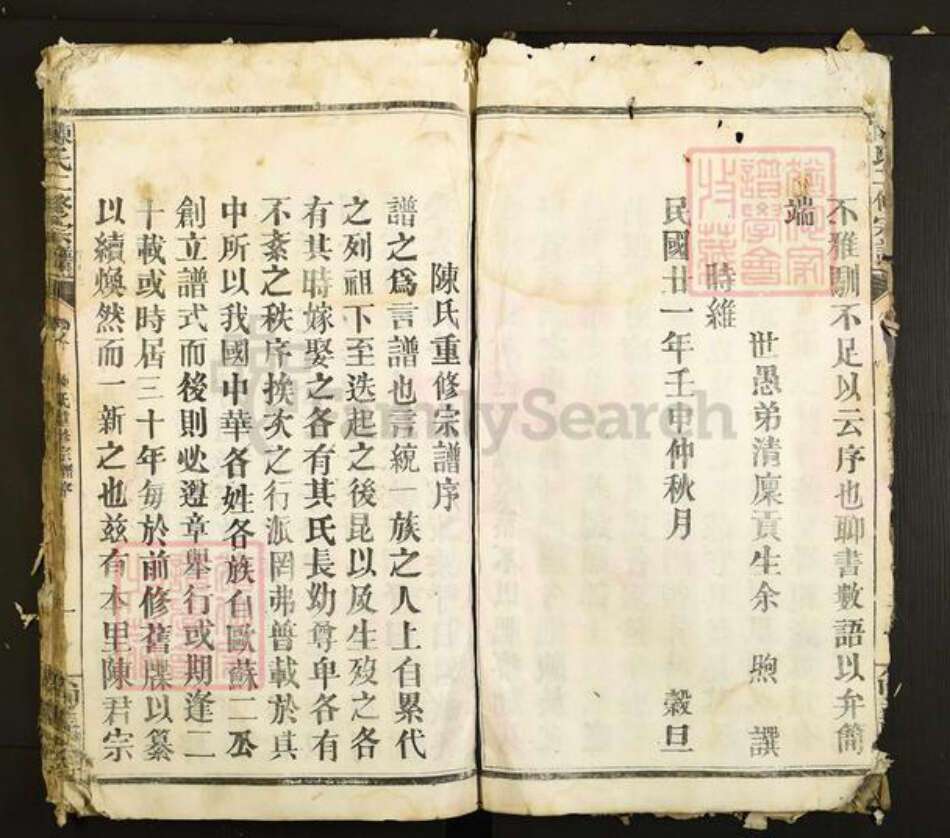 不雅馴不足以云序也聊書數語以弁簡
端
世愚弟清廩貢生余 煦 譔
時維
民國廿一年壬申仲秋月 穀旦
陳氏重修宗譜序
譜之爲言譜也言統一族之人上自累代
之列祖下至迭起之後昆以及生歿之各
有其時嫁娶之各有其氏長幼尊卑各有
不紊之秩序挨次之行派罔弗普載於其
中所以我國中華各姓各族自歐蘇二公
創立譜式而後則必遵章舉行或期逢二
十載或時居三十年每於前修舊牒以纂
以續煥然而一新之也茲有本里陳君宗
陳氏二修宗譜
FamilySearch